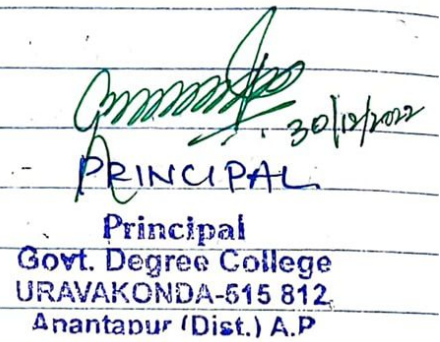 30/12/2022
PRINCIPAL
Principal
Govt. Degree College
URAVAKONDA-515 812,
Anantapur (Dist.) A.P